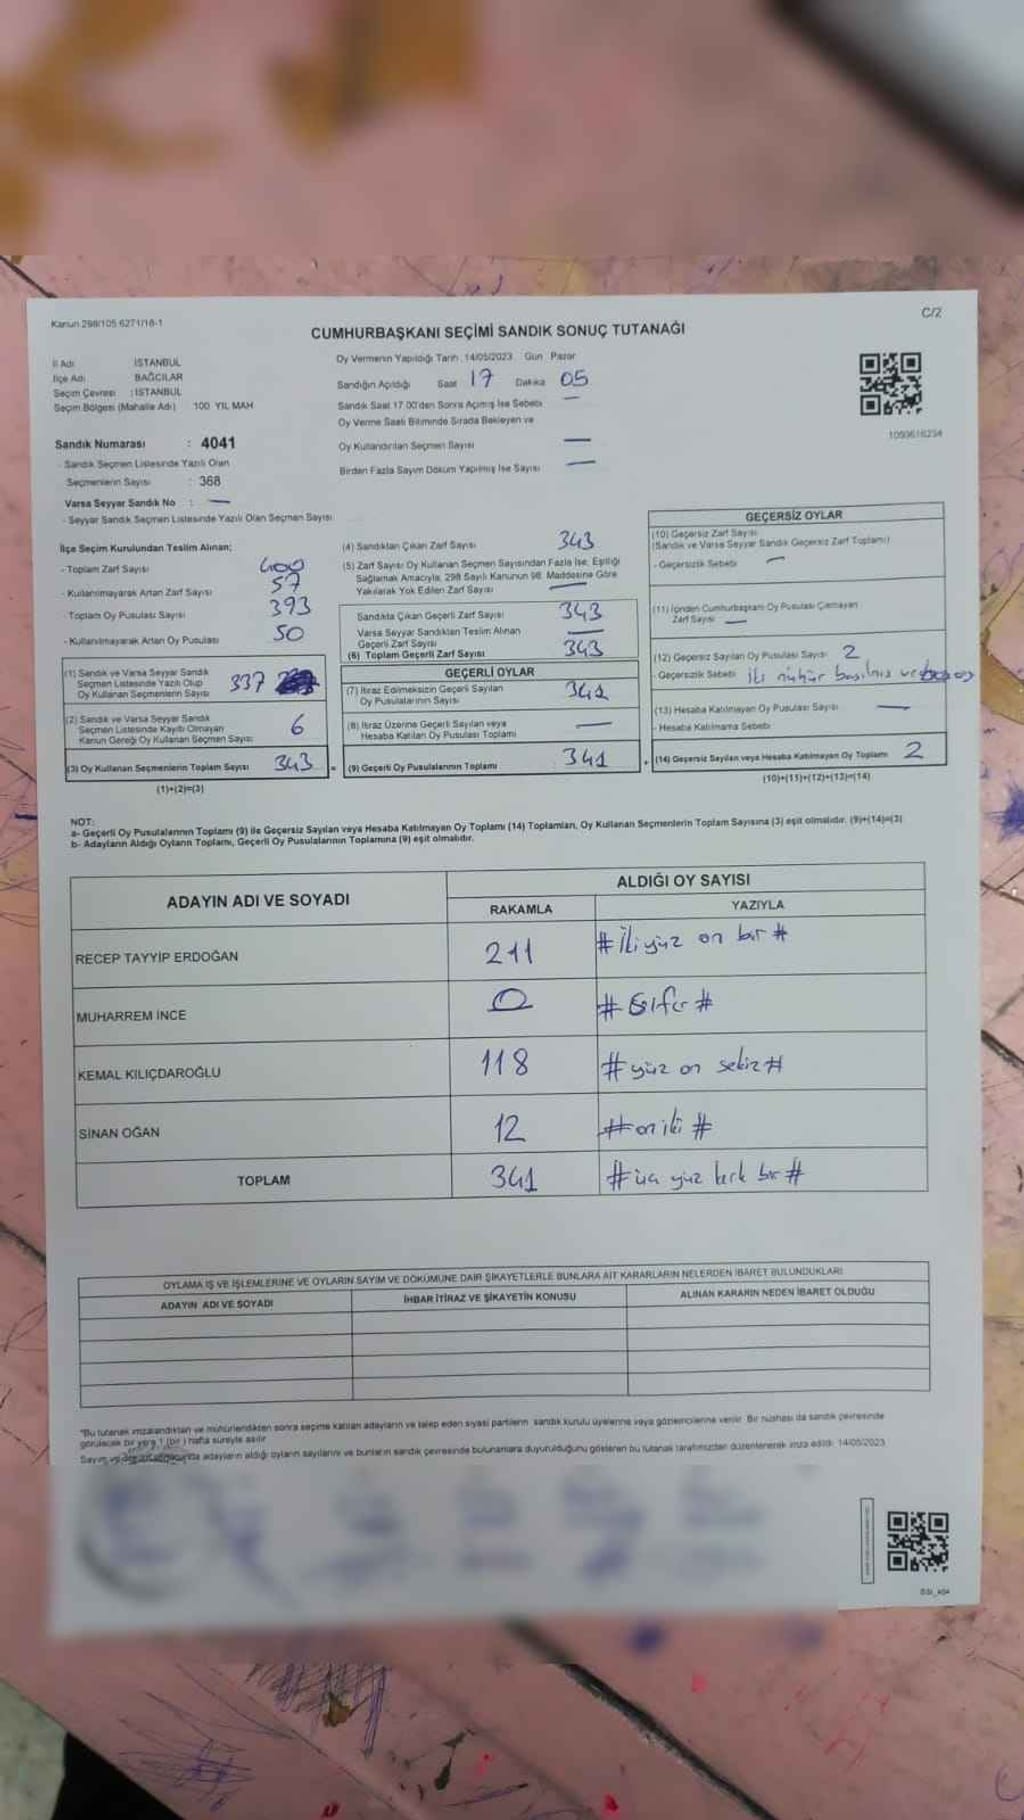 Kanun 298/105 6271/18-1
C/2
CUMHURBAŞKANI SEÇİMİ SANDIK SONUÇ TUTANAĞI
İl Adı : İSTANBUL
İlçe Adı : BAĞCILAR
Seçim Çevresi : İSTANBUL
Seçim Bölgesi (Mahalle Adı) 100 YIL MAH
Sandık Numarası : 4041
- Sandık Seçmen Listesinde Yazılı Olan
Seçmenlerin Sayısı : 368
Varsa Seyyar Sandık No : —
- Seyyar Sandık Seçmen Listesinde Yazılı Olan Seçmen Sayısı
Oy Vermenin Yapıldığı Tarih : 14/05/2023 Gün Pazar
Sandığın Açıldığı Saat 17 Dakika 05
Sandık Saat 17.00'den Sonra Açılmış İse Sebebi —
Oy Verme Saati Bitiminde Sırada Bekleyen ve
Oy Kullandırılan Seçmen Sayısı —
Birden Fazla Sayım Döküm Yapılmış İse Sayısı —
1093616234
İlçe Seçim Kurulundan Teslim Alınan;
- Toplam Zarf Sayısı 400
- Kullanılmayarak Artan Zarf Sayısı 57
- Toplam Oy Pusulası Sayısı 393
- Kullanılmayarak Artan Oy Pusulası 50
(1) Sandık ve Varsa Seyyar Sandık
Seçmen Listesinde Yazılı Olup
Oy Kullanan Seçmenlerin Sayısı 337
(2) Sandık ve Varsa Seyyar Sandık
Seçmen Listesinde Kayıtlı Olmayan
Kanun Gereği Oy Kullanan Seçmen Sayısı 6
(3) Oy Kullanan Seçmenlerin Toplam Sayısı 343
(1)+(2)=(3)
(4) Sandıktan Çıkan Zarf Sayısı 343
(5) Zarf Sayısı Oy Kullanan Seçmen Sayısından Fazla İse, Eşitliği
Sağlamak Amacıyla, 298 Sayılı Kanunun 98. Maddesine Göre
Yakılarak Yok Edilen Zarf Sayısı —
Sandıkta Çıkan Geçerli Zarf Sayısı 343
Varsa Seyyar Sandıktan Teslim Alınan
Geçerli Zarf Sayısı —
(6) Toplam Geçerli Zarf Sayısı 343
GEÇERLİ OYLAR
(7) İtiraz Edilmeksizin Geçerli Sayılan
Oy Pusulalarının Sayısı 341
(8) İtiraz Üzerine Geçerli Sayılan veya
Hesaba Katılan Oy Pusulası Toplamı —
= (9) Geçerli Oy Pusulalarının Toplamı 341
GEÇERSİZ OYLAR
(10) Geçersiz Zarf Sayısı
(Sandık ve Varsa Seyyar Sandık Geçersiz Zarf Toplamı)
- Geçersizlik Sebebi —
(11) İçinden Cumhurbaşkanı Oy Pusulası Çıkmayan
Zarf Sayısı —
(12) Geçersiz Sayılan Oy Pusulası Sayısı 2
- Geçersizlik Sebebi iki mühür basılmış ve boş oy
(13) Hesaba Katılmayan Oy Pusulası Sayısı —
- Hesaba Katılmama Sebebi
+ (14) Geçersiz Sayılan veya Hesaba Katılmayan Oy Toplamı 2
(10)+(11)+(12)+(13)=(14)
NOT:
a- Geçerli Oy Pusulalarının Toplamı (9) ile Geçersiz Sayılan veya Hesaba Katılmayan Oy Toplamı (14) Toplamları, Oy Kullanan Seçmenlerin Toplam Sayısına (3) eşit olmalıdır. (9)+(14)=(3)
b- Adayların Aldığı Oyların Toplamı, Geçerli Oy Pusulalarının Toplamına (9) eşit olmalıdır.
ADAYIN ADI VE SOYADI
ALDIĞI OY SAYISI
RAKAMLA YAZIYLA
RECEP TAYYİP ERDOĞAN 211 # İki yüz on bir #
MUHARREM İNCE 0 # Sıfır #
KEMAL KILIÇDAROĞLU 118 # yüz on sekiz #
SİNAN OĞAN 12 # on iki #
TOPLAM 341 # üç yüz kırk bir #
OYLAMA İŞ VE İŞLEMLERİNE VE OYLARIN SAYIM VE DÖKÜMÜNE DAİR ŞİKAYETLERLE BUNLARA AİT KARARLARIN NELERDEN İBARET BULUNDUKLARI
ADAYIN ADI VE SOYADI İHBAR İTİRAZ VE ŞİKAYETİN KONUSU ALINAN KARARIN NEDEN İBARET OLDUĞU
"Bu tutanak imzalandıktan ve mühürlendikten sonra seçime katılan adayların ve talep eden siyasi partilerin sandık kurulu üyelerine veya gözlemcilerine verilir. Bir nüshası da sandık çevresinde
görülecek bir yere 1 (bir) hafta süreyle asılır
adayların aldığı oyların sayılarını ve bunların sandık çevresinde bulunanlara duyurulduğunu gösteren bu tutanak tarafımızdan düzenlenerek imza edildi. 14/05/2023